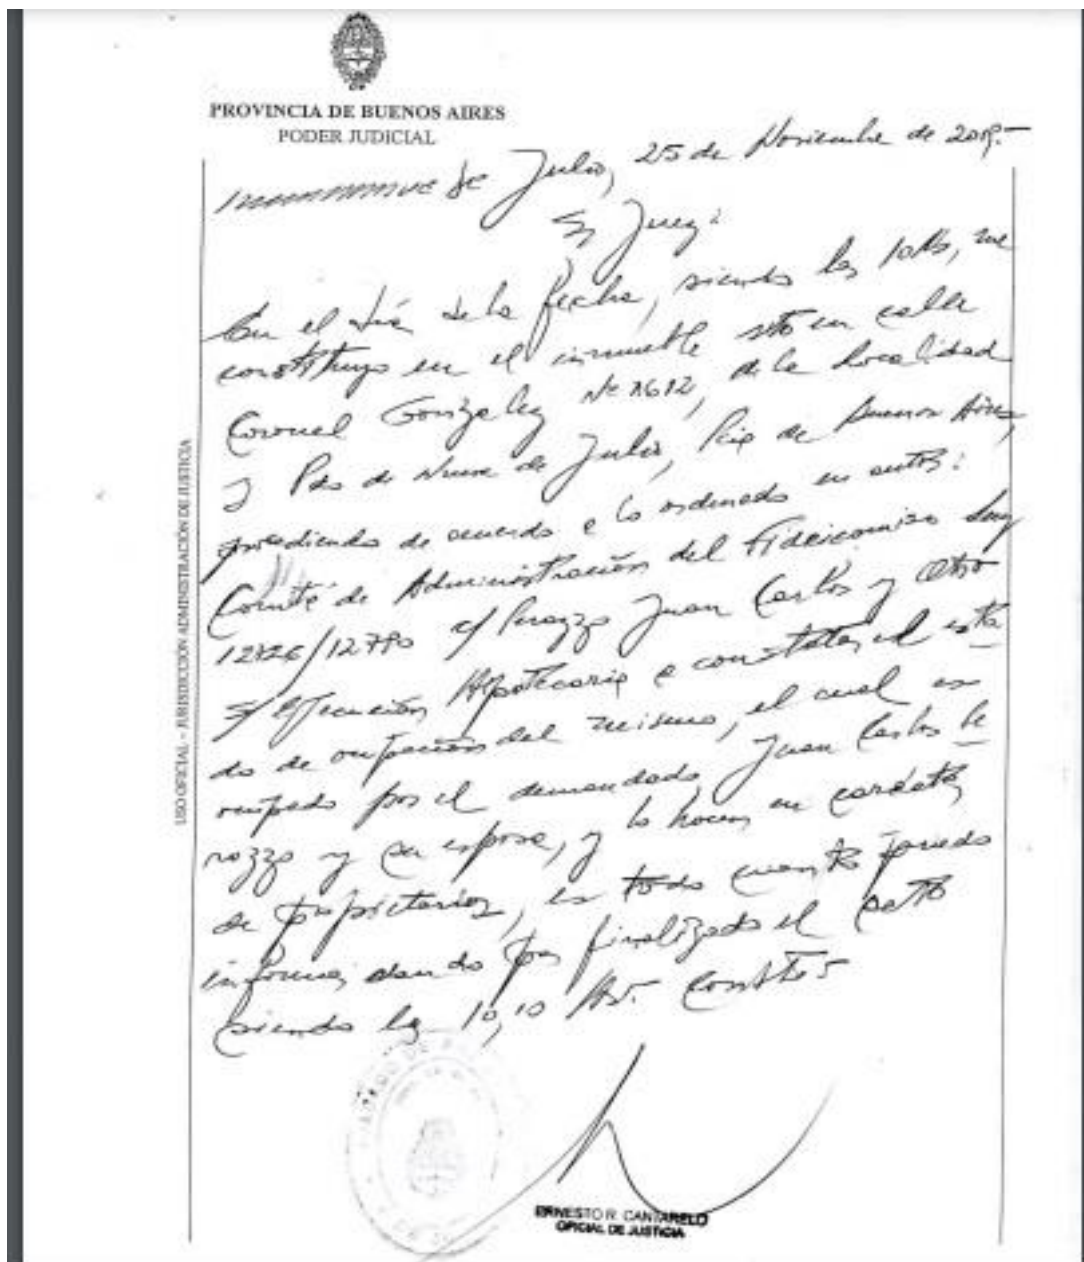 PROVINCIA DE BUENOS AIRES
PODER JUDICIAL
de Julio, 25 de Noviembre de 2019.-
Sr Juez:
En el día de la fecha, siendo las 10 hs, me
constituyo en el inmueble sito en calle
Coronel González Nº 1612, de la localidad
y Pdo de Nueve de Julio, Pcia de Buenos Aires,
procediendo de acuerdo a lo ordenado en autos:
Comité de Administración del Fideicomiso Ley
12726/12790 c/ Perazzo Juan Carlos y Otro
S/ Ejecución Hipotecaria a constatar el esta
do de ocupación del mismo, el cual es
ocupado por el demandado, Juan Carlos Pe
razzo y su esposa, y lo hacen en carácter
de propietarios, es todo cuanto puedo
informar, dando por finalizado el acto
siendo las 10,10 hs. Conste.-
USO OFICIAL - JURISDICCIÓN ADMINISTRACIÓN DE JUSTICIA
ERNESTO R. CANTARELO
OFICIAL DE JUSTICIA